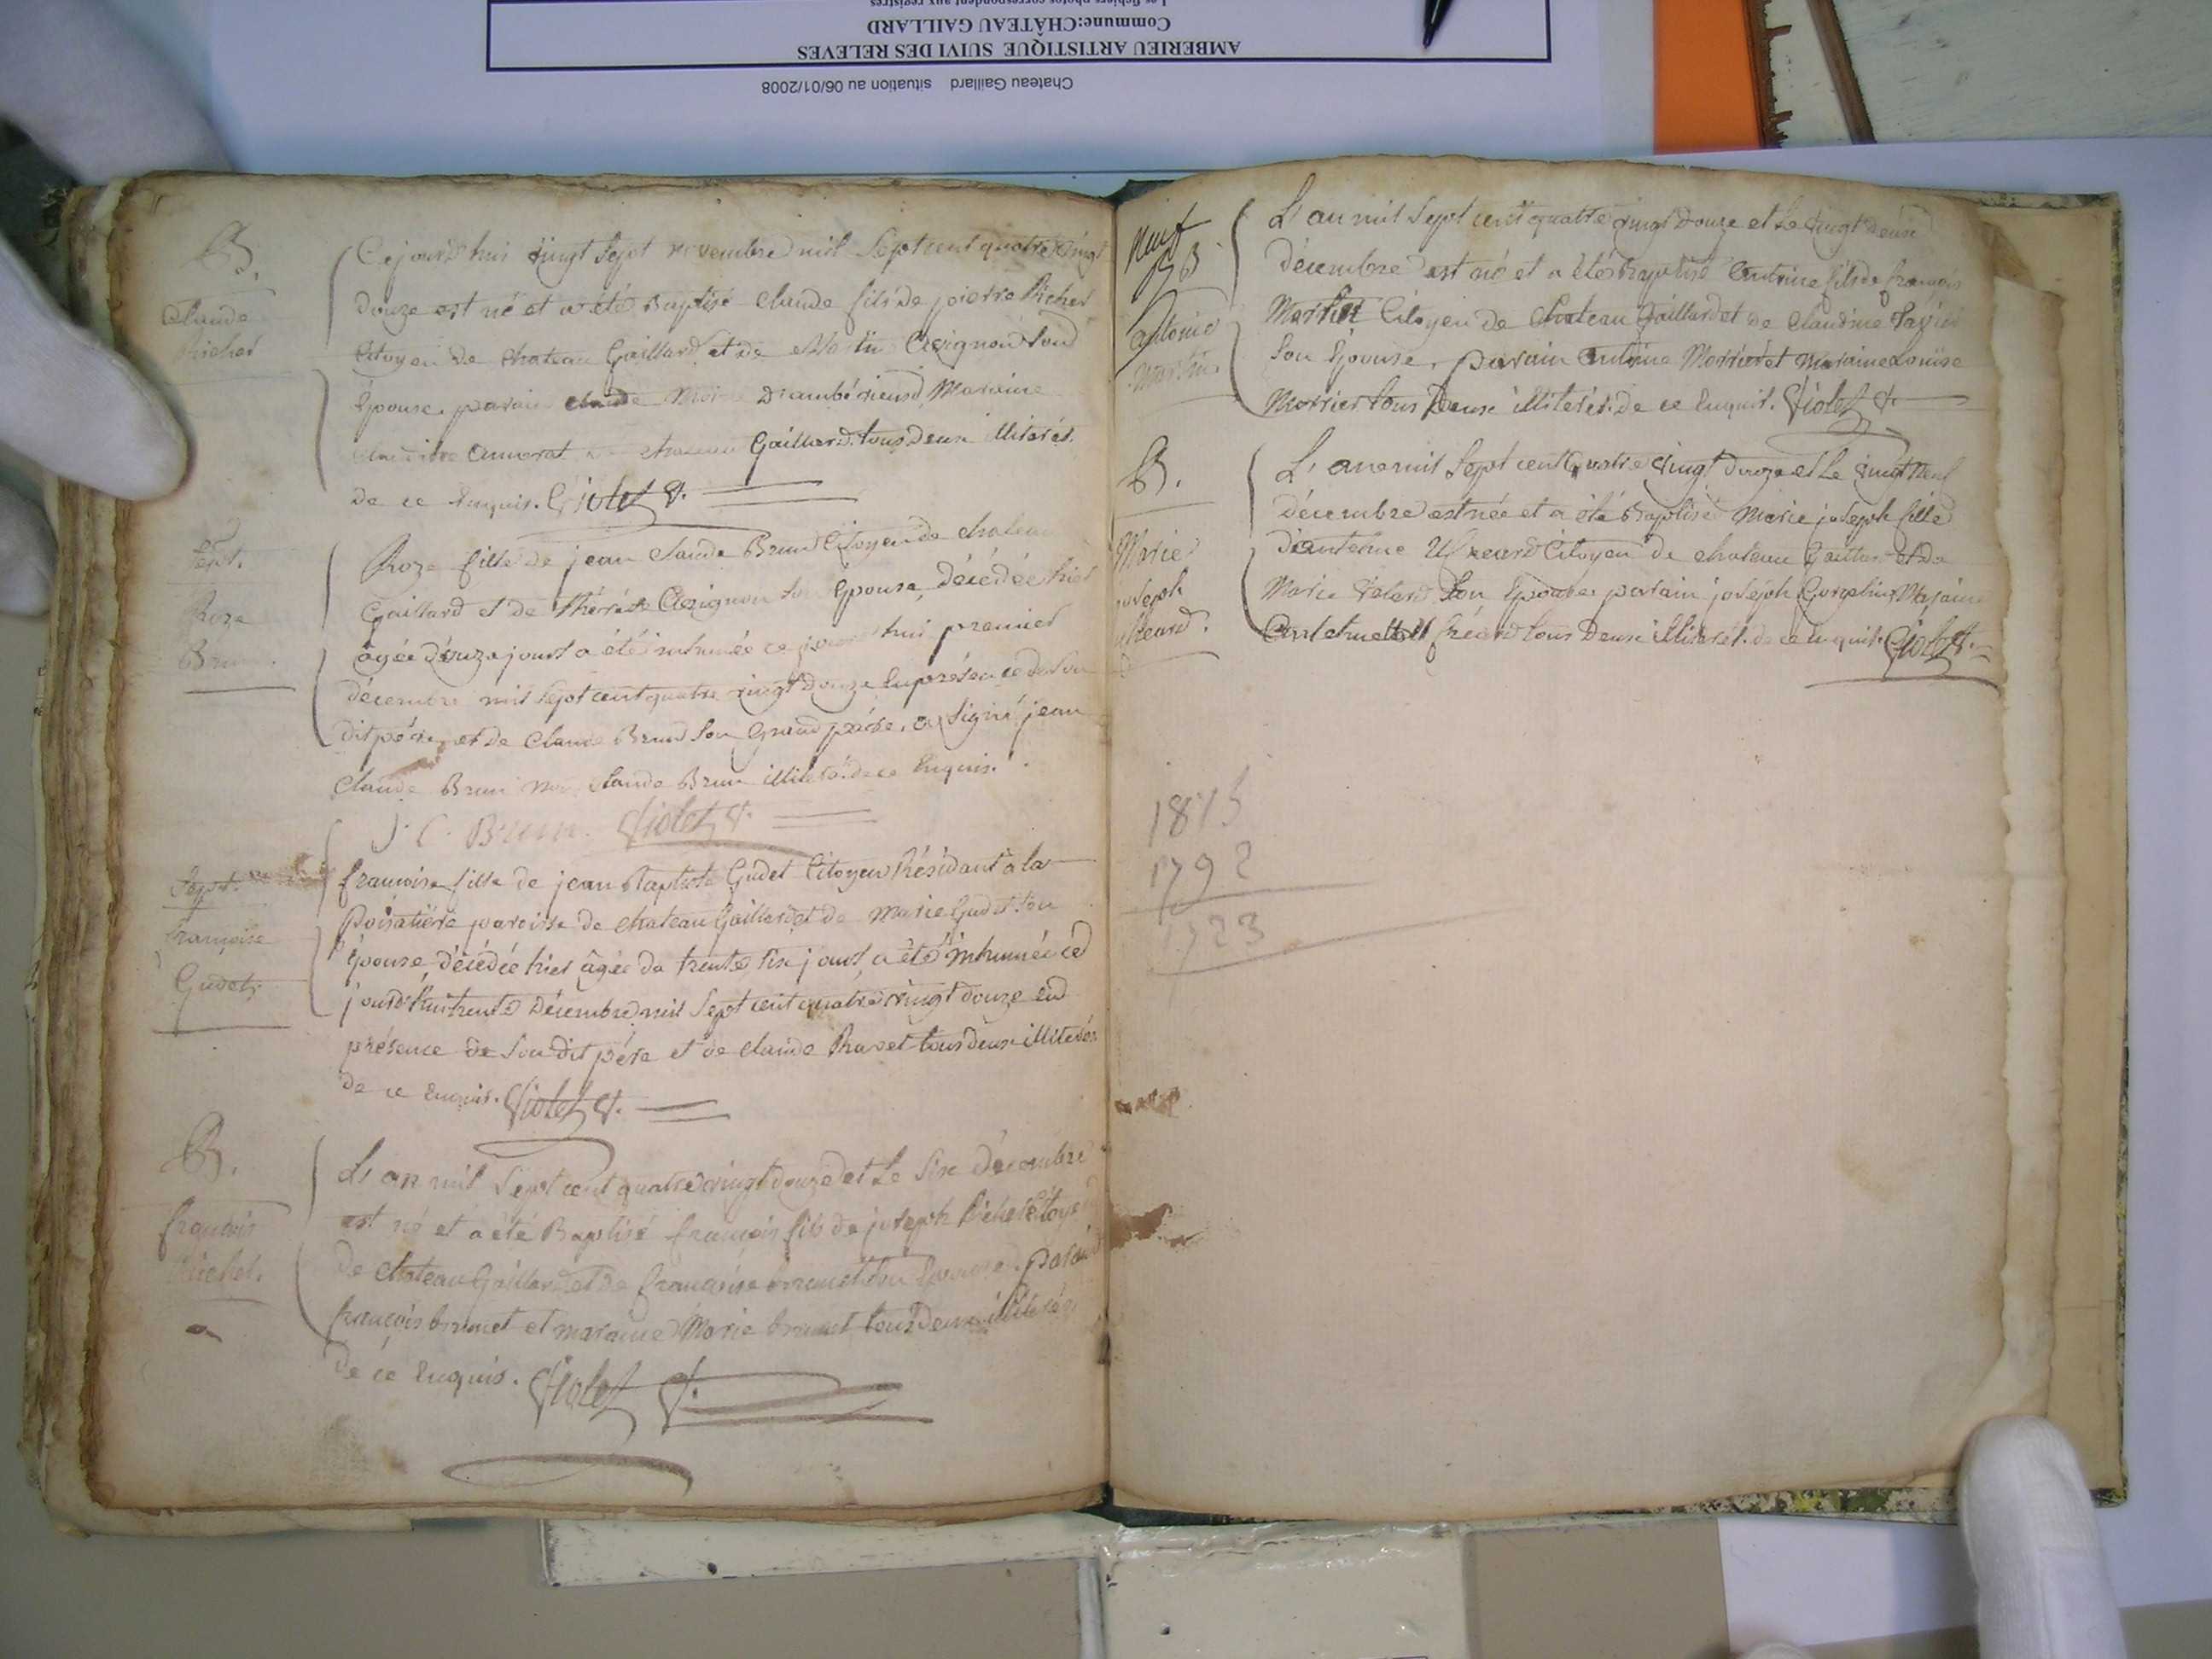 Les fichiers photos correspondent aux registres
Commune:CHÂTEAU GAILLARD
AMBERIEU ARTISTIQUE SUIVI DES RELEVES
Chateau Gaillard situation au 06/01/2008
B.
Claude
Richet
Cejourd'hui vingt sept novembre mil sept cent quatre vingt
douze est né et a été Baptisé Claude fils de pierre Richet
Citoyen de chateau Gaillard et de
Épouse. parain claude d'ambérieux, Maraine
chateau Gaillard. tous deux illiterés.
de ce Enquis. Violet
Sept.
Roze
Brun.
Roze fille de jean Claude Brun Citoyen de chateau
Gaillard et de Thérèse son Épouse, décédée hier
âgée d'onze jours a été inhumée ce jourd'hui premier
décembre mil sept cent quatre vingt douze En présence de Son
dit père, et de Claude Brun Son Grand père, a signé jean
Claude Brun non Claude Brun illiteré. de ce Enquis.
J. C. Brun. Violet
Sept.
françoise
Gudet
francoise fille de jean Baptiste Gudet Citoyen Résidant a la
paroisse de chateau Gaillard et de Marie Gudet son
Épouse, décédée hier âgée de trente six jours, a été inhumée ce
jourd'hui trente décembre mil sept cent quatre vingt douze en
présence de Son dit père et de claude Ravet tous deux illiterés
de ce enquis. Violet
B.
françois
Richet.
L'an mil Sept cent quatre vingt douze et Le Six décembre
est né et a été Baptisé françois fils de joseph Richet Citoyen
de chateau Gaillard et de françoise brunet Son Epouse. parain
françois brunet et maraine Marie brunet tous deux illiterés
de ce Enquis. Violet
neuf
B
antoine
Martin
L'an mil Sept cent quatre vingt Douze et Le vingt deux
décembre est né et a été Baptisé Antoine fils de françois
Martin Citoyen de chateau Gaillard et de Claudine
Son Epouse, parain Antoine et Maraine Louise
tous Deux illiterés. de ce Enquis. Violet
B.
Marie
joseph
L'an mil Sept cent quatre vingt douze et Le vingt neuf
décembre est née et a été Baptisé Marie joseph fille
d'antoine Citoyen de chateau Gaillard et de
Marie Son Epouse. parain joseph Maraine
tous Deux illiterés. de ce enquis. Violet
1815
1792
1723